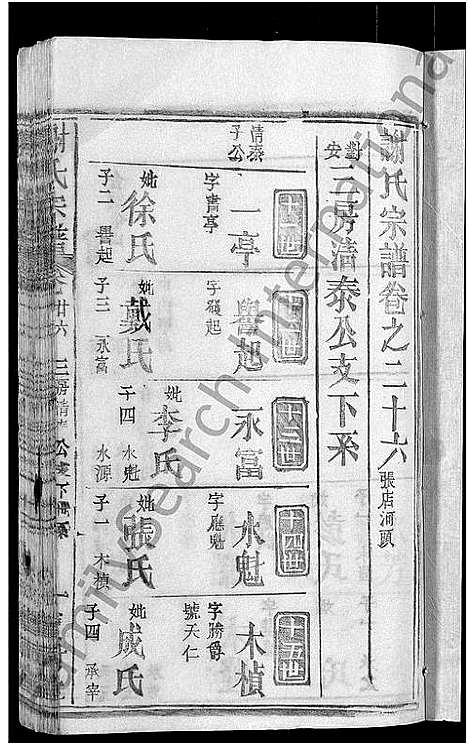 謝氏宗譜卷之二十六 張店河頭
對安三房清泰公支下系
清泰公子
十一世
一亭
字肅亭
妣徐氏
子二 譽起
十二世
譽起
字發起
妣戴氏
子三 永富
十三世
永富
妣李氏
子四 水魁 水源
十四世
水魁
字應魁
妣張氏
子一 木楨
十五世
木楨
字勝爵
號天仁
妣成氏
子四 承宰
謝氏宗譜
卷廿六
三房清泰公支下
FamilySearch International